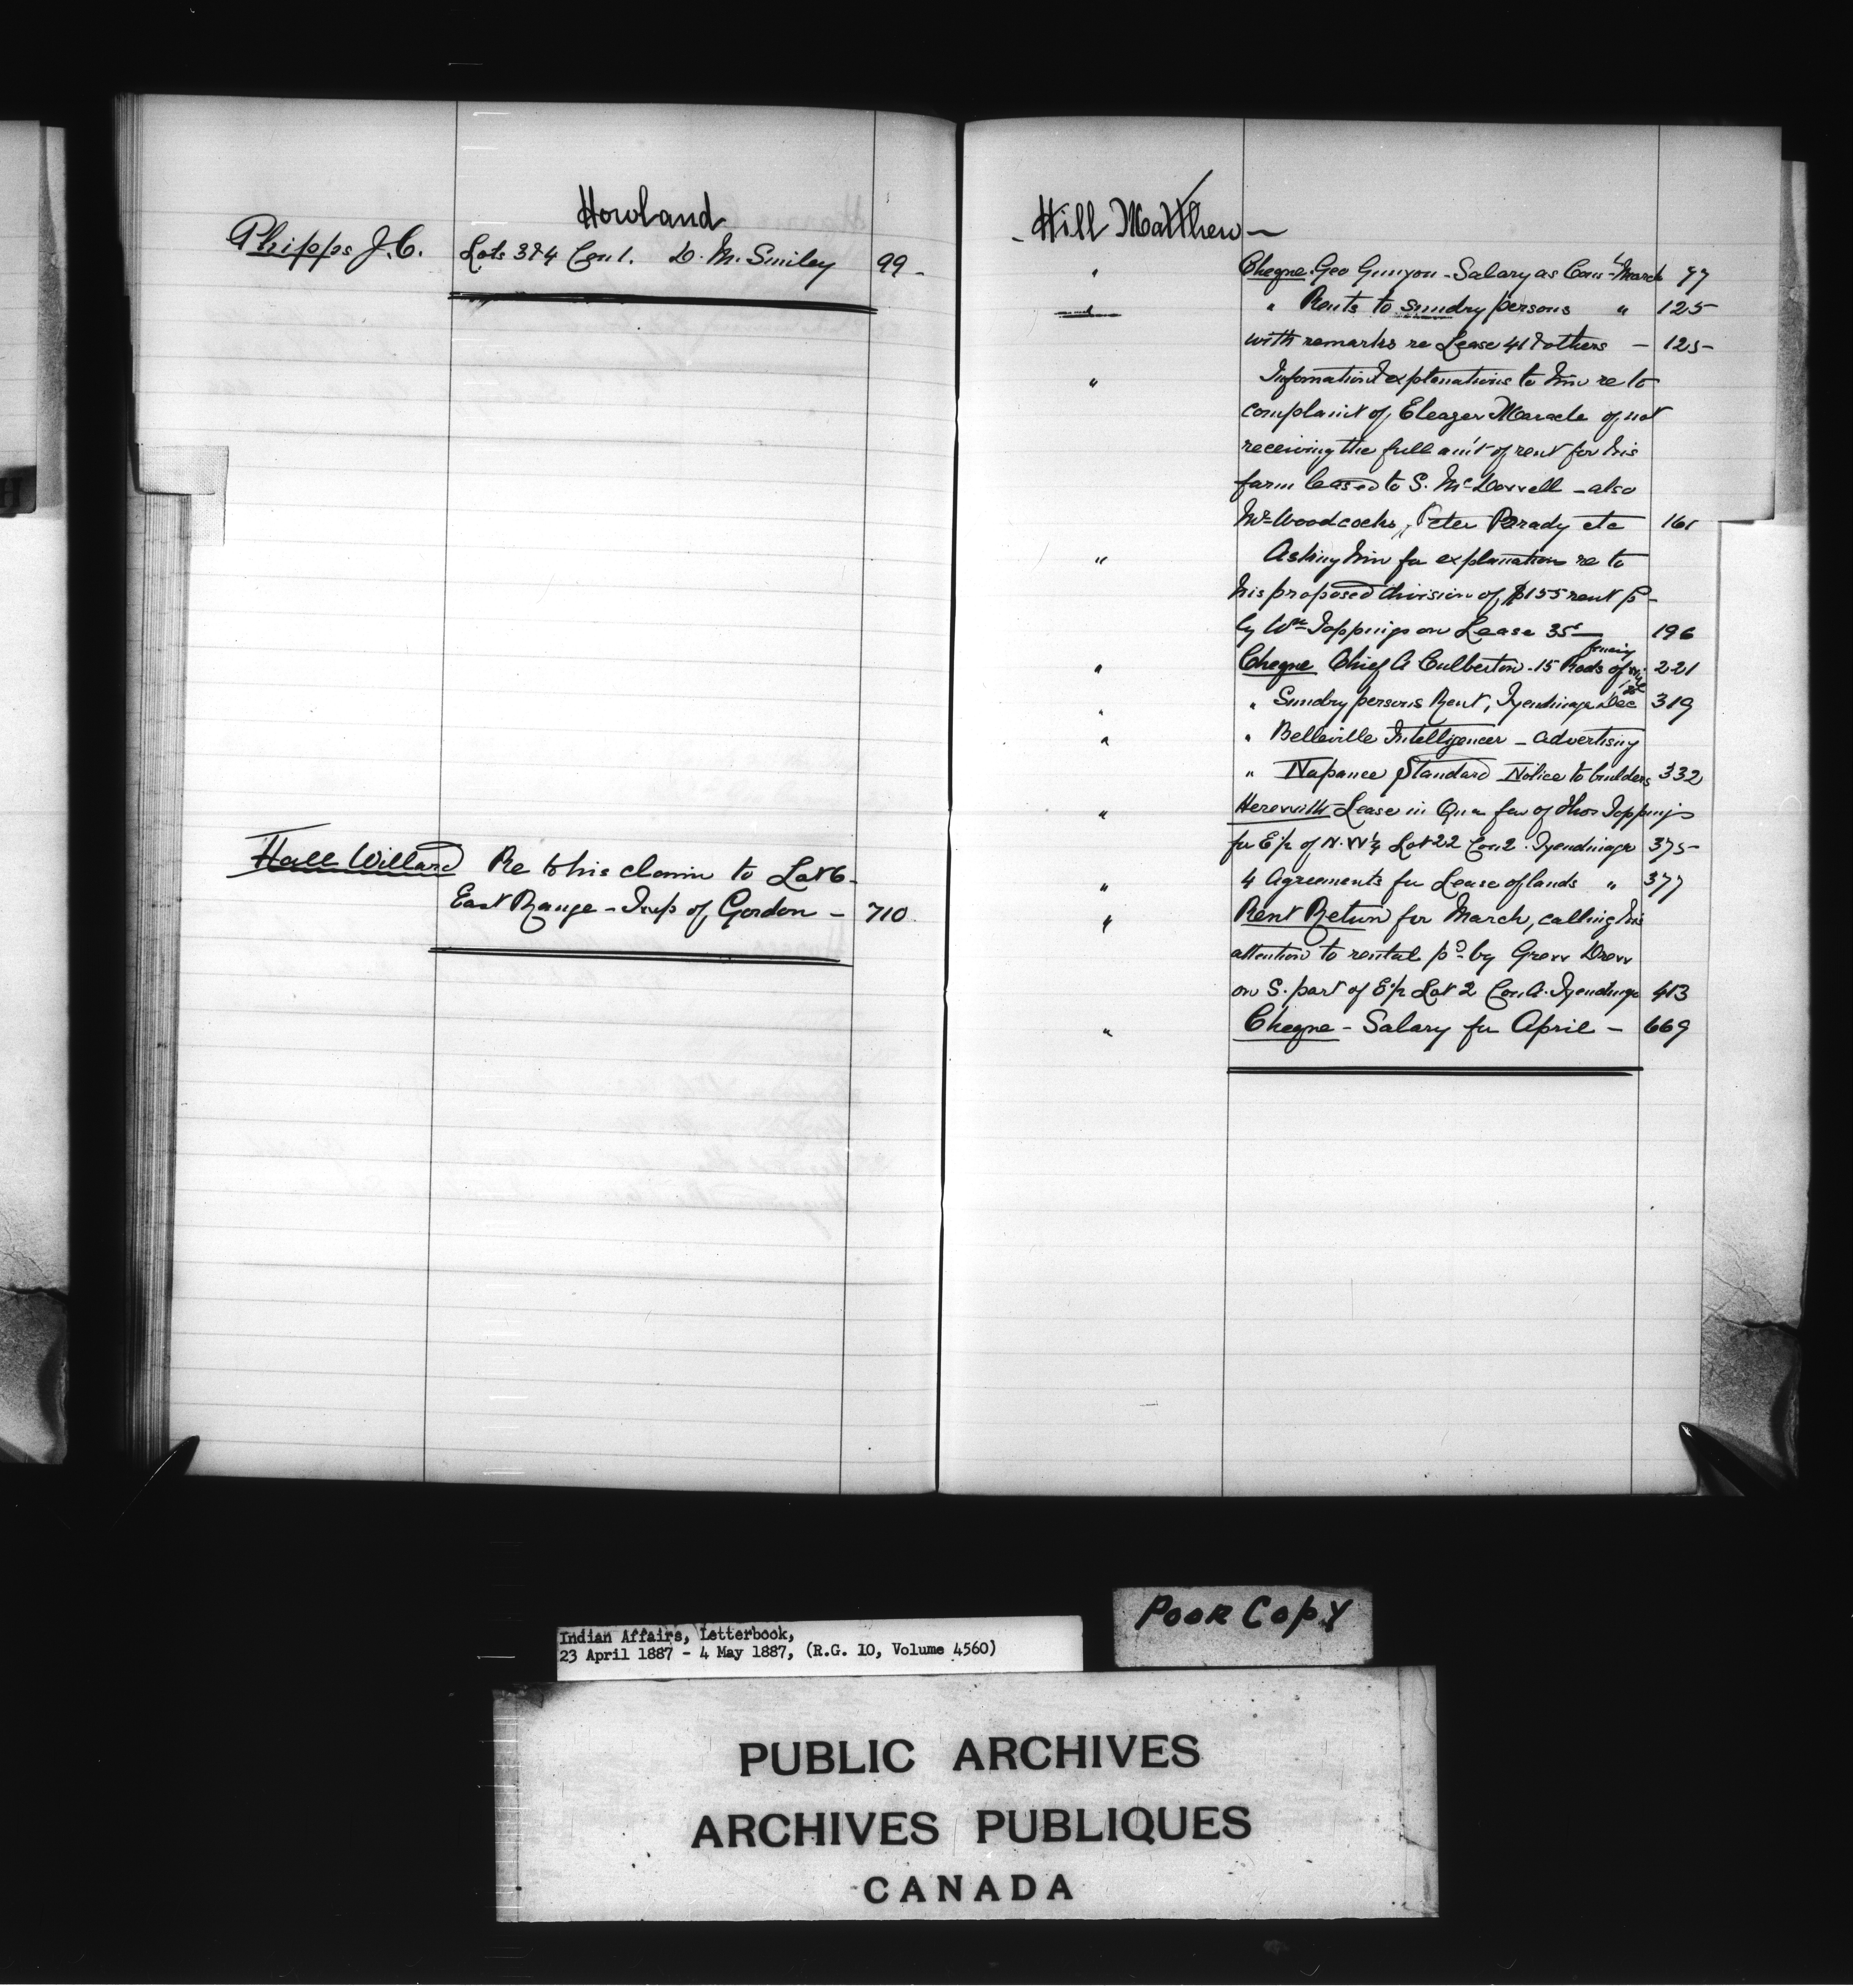 Howland
Phipps J.C. Lots 3 & 4 Con 1. D. M. Smiley 99 -
Hall Willard Re to his claim to Lot 6-
East Range - Twp of Gordon - 710
- Hill Matthew -
" Cheque. Geo Gunyon - Salary as Cons March 97
" " Rents to sundry persons " 125
with remarks re Lease 41 & others - 125
" Information & explanations to him re to
complaint of Eleazer Maracle of not
receiving the full am't of rent for his
farm leased to S. McDowell - also
Mrs Woodcocks, Peter Parady etc 161
" Asking him for explanation re to
his proposed division of $155 rent p-
by Wm Toppings on Lease 35- 196
" Cheque Chief A Culbertson - 15 Rods of fencing 221
" " Sundry persons Rent, Tyendinaga Dec 319
" " Belleville Intelligencer - advertising
" Napanee Standard Notice to builders 332
" Herewith Lease in Qu in fav of Thos Toppings
for E½ of N.W¼ Lot 22 Con 2 Tyendinaga 375-
" 4 Agreements for Lease of lands " 377
" Rent Return for March, calling his
attention to rental pd by Drew
on S. part of E½ Lot 2 Con A. Tyendinga 413
" Cheque - Salary for April - 669
H
Indian Affairs, Letterbook,
23 April 1887 - 4 May 1887, (R.G. 10, Volume 4560)
POOR COPY
PUBLIC ARCHIVES
ARCHIVES PUBLIQUES
CANADA